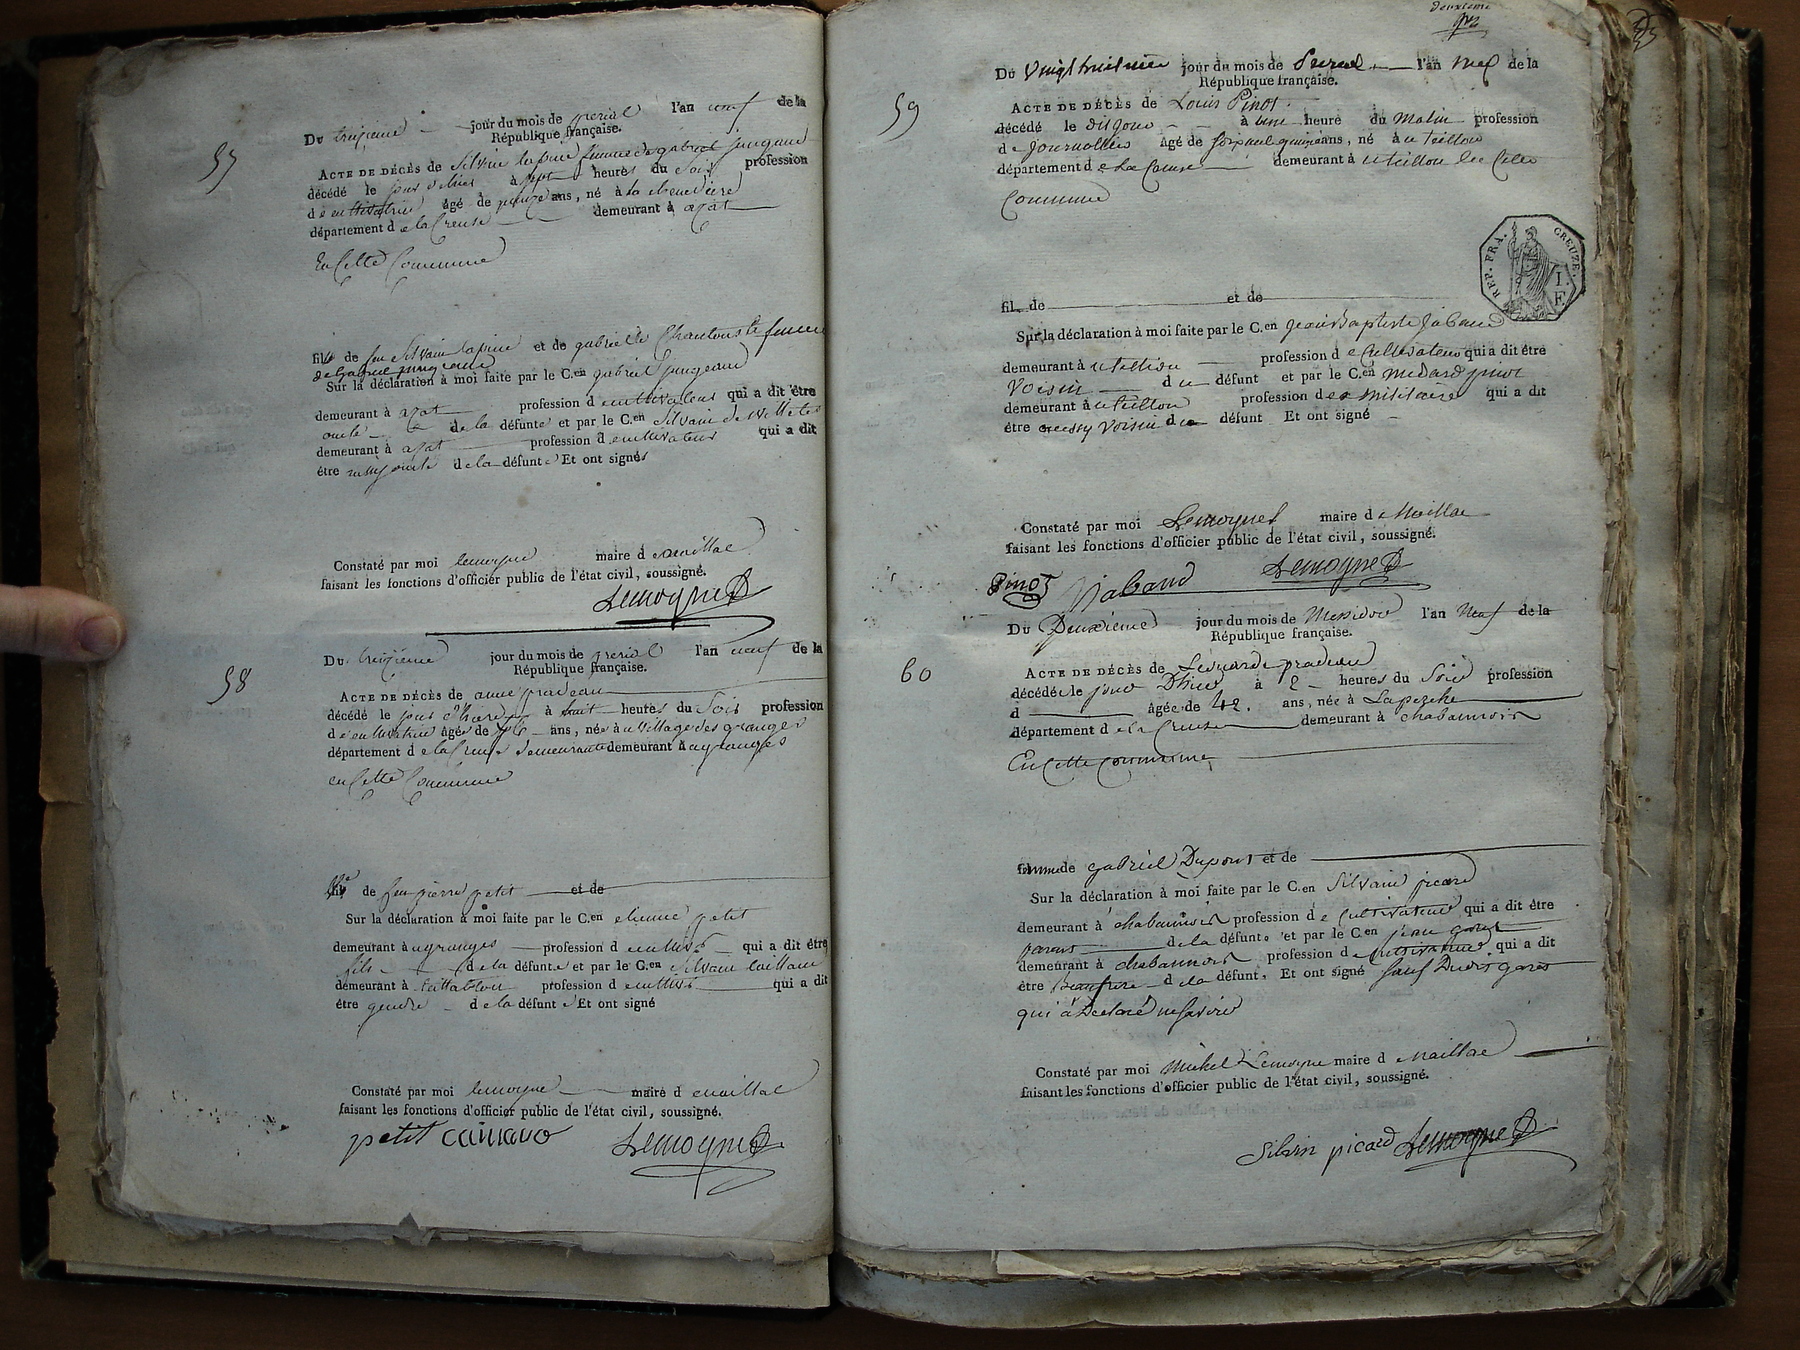 57
Du treizieme jour du mois de prerial l'an neuf de la
République française.
ACTE DE DÉCÈS de Silvine lapine femme de gabriel jungeaud
décédé le jour d'hier à sept heures du soir profession
d e cultivatrice âgé de ans, né à la
département d e la Creuse demeurant à azat
En Cette Commune
fille de feu Silvain lapine et de gabrielle Chantouste femme
de Gabriel jungeaud
Sur la déclaration à moi faite par le C.en gabriel jungeaud
demeurant à azat profession d cultivateur qui a dit être
de la défunte et par le C.en Silvain de
demeurant à azat profession d cultivateur qui a dit
être d e la défunte Et ont signés
Constaté par moi lemoyne maire d e maillac
faisant les fonctions d'officier public de l'état civil, soussigné.
Lemoyne
58
Du treizieme jour du mois de prerial l'an neuf de la
République française.
ACTE DE DÉCÈS de anne pradeau
décédé le jour d'hier à huit heures du Soir profession
d e cultivatrice âgée de ans, née à u village des granges
département d e la Creuse demeurante demeurant à ugranges
en Cette Commune
de feu pierre petit et de
Sur la déclaration à moi faite par le C.en etienne petit
demeurant à ugranges profession d cultivr qui a dit être
fils de la défunte et par le C.en Silvain
demeurant à profession d cultivr qui a dit
être gendre d e la défunte Et ont signé
Constaté par moi lemoyne maire d emaillac
faisant les fonctions d'officier public de l'état civil, soussigné.
petit Lemoyne
deuxieme
59
Du Vingt huitieme jour du mois de Prerial l'an neuf de la
République française.
ACTE DE DÉCÈS de Louis Pinot
décédé le dit jour à une heure du Matin profession
d e Journallier âgé de ans, né à u teillou
département d e La Creuse demeurant à uteillou
Commune
REP. FRA. CREUZE.
fil de et de
Sur la déclaration à moi faite par le C.en jean Baptiste Jabaud
demeurant à uteillou profession d e Cultivateur qui a dit être
Voisin d u défunt et par le C.en medard pinot
demeurant à uteillou profession d ex militaire qui a dit
être aussy Voisin d u défunt Et ont signé
Constaté par moi Lemoyne maire d e Maillac
faisant les fonctions d'officier public de l'état civil, soussigné.
Pinot Jabaud Lemoyne
60
Du Deuxieme jour du mois de Messidor l'an Neuf de la
République française.
ACTE DE DÉCÈS de Léonarde pradeau
décédée le jour Dhier à 2 heures du Soir profession
d âgée de 42. ans, née à
département d e la Creuse demeurant à chabannois
En Cette Commune
femme de gabriel Dupont et de
Sur la déclaration à moi faite par le C.en Silvain picard
demeurant à chabannois profession d e Cultivateur qui a dit être
parent de la défunte et par le C.en jean
demeurant à chabannois profession d e Cultivateur qui a dit
être Beaufrere d e la défunt, Et ont signé Sauf Ledit
qui à Declaré ne savoir
Constaté par moi Michel Lemoyne maire d e Maillac
faisant les fonctions d'officier public de l'état civil, soussigné.
Silvin picard Lemoyne